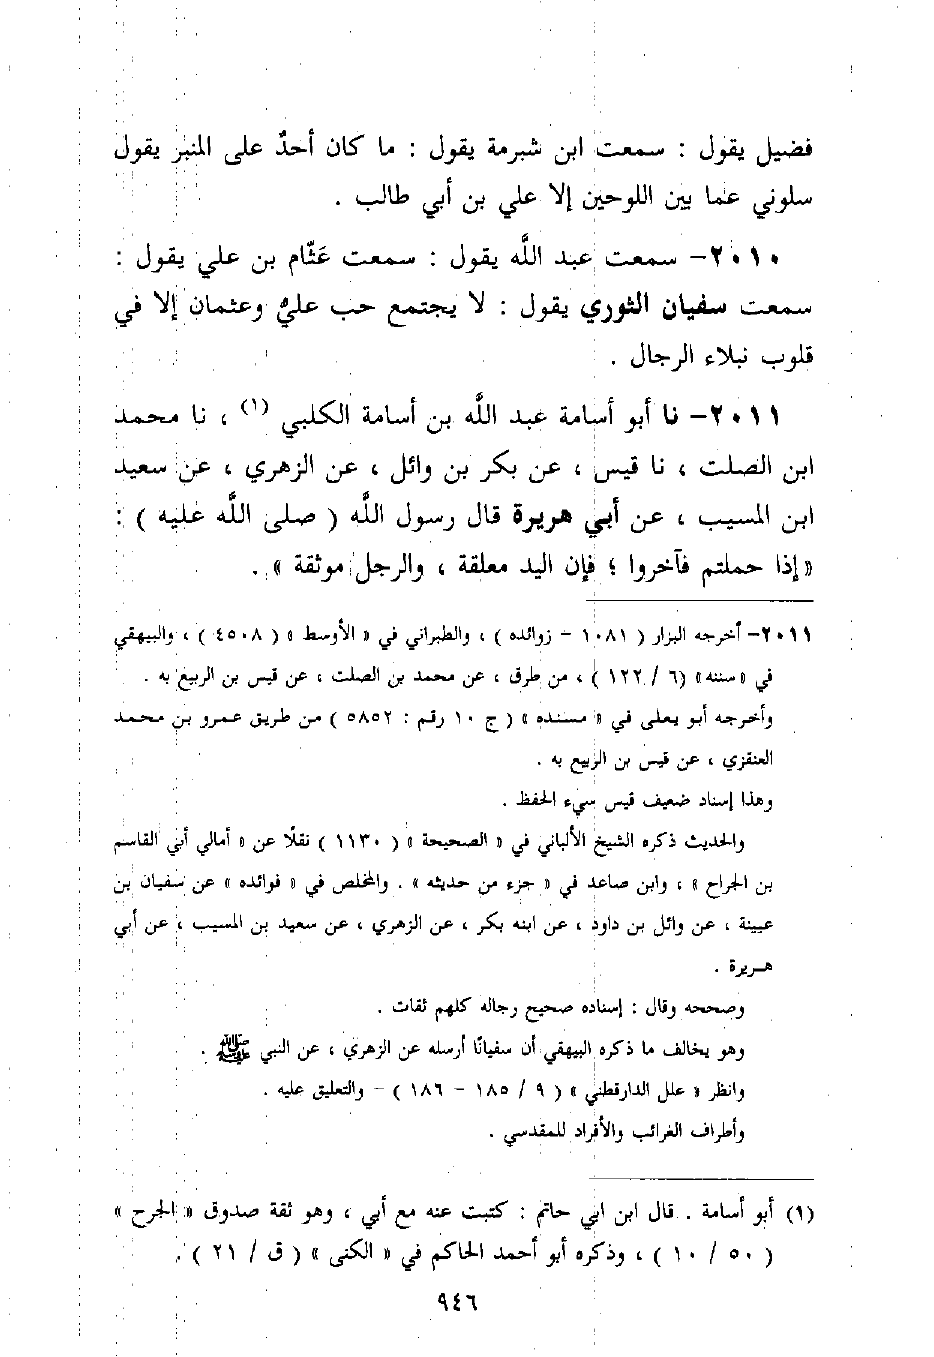 فضيل يقول : سمعت ابن شبرمة يقول : ما كان أحدٌ على المنبر يقول
سلوني عما بين اللوحين إلا علي بن أبي طالب .
٢٠١٠- سمعت عبد اللَّه يقول : سمعت عَثَّام بن علي يقول :
سمعت سفيان الثوري يقول : لا يجتمع حب عليٍّ وعثمان إلا في
قلوب نبلاء الرجال .
٢٠١١- نا أبو أسامة عبد اللَّه بن أسامة الكلبي (١) ، نا محمد
ابن الصلت ، نا قيس ، عن بكر بن وائل ، عن الزهري ، عن سعيد
ابن المسيب ، عن أبي هريرة قال رسول اللَّه ( صلى اللَّه عليه ) :
« إذا حملتم فآخروا ؛ فإن اليد معلقة ، والرجل موثقة » .
٢٠١١- أخرجه البزار ( ١٠٨١ - زوائده ) ، والطبراني في « الأوسط » ( ٤٥٠٨ ) ، والبيهقي
في « سننه » (٦ / ١٢٢ ) ، من طرق ، عن محمد بن الصلت ، عن قيس بن الربيع به .
وأخرجه أبو يعلى في « مسنده » ( ج ١٠ رقم : ٥٨٥٢ ) من طريق عمرو بن محمد
العنقزي ، عن قيس بن الربيع به .
وهذا إسناد ضعيف قيس سيء الحفظ .
والحديث ذكره الشيخ الألباني في « الصحيحة » ( ١١٣٠ ) نقلًا عن « أمالي أبي القاسم
بن الجراح » ، وابن صاعد في « جزء من حديثه » . والمخلص في « فوائده » عن سفيان بن
عيينة ، عن وائل بن داود ، عن ابنه بكر ، عن الزهري ، عن سعيد بن المسيب ، عن أبي
هريرة .
وصححه وقال : إسناده صحيح رجاله كلهم ثقات .
وهو يخالف ما ذكره البيهقي أن سفيانًا أرسله عن الزهري ، عن النبي ﷺ .
وانظر « علل الدارقطني » ( ٩ / ١٨٥ - ١٨٦ ) - والتعليق عليه .
وأطراف الغرائب والأفراد للمقدسي .
(١) أبو أسامة . قال ابن ابي حاتم : كتبت عنه مع أبي ، وهو ثقة صدوق « الجرح »
( ٥٠ / ١٠ ) ، وذكره أبو أحمد الحاكم في « الكنى » ( ق / ٢١ ) .
٩٤٦